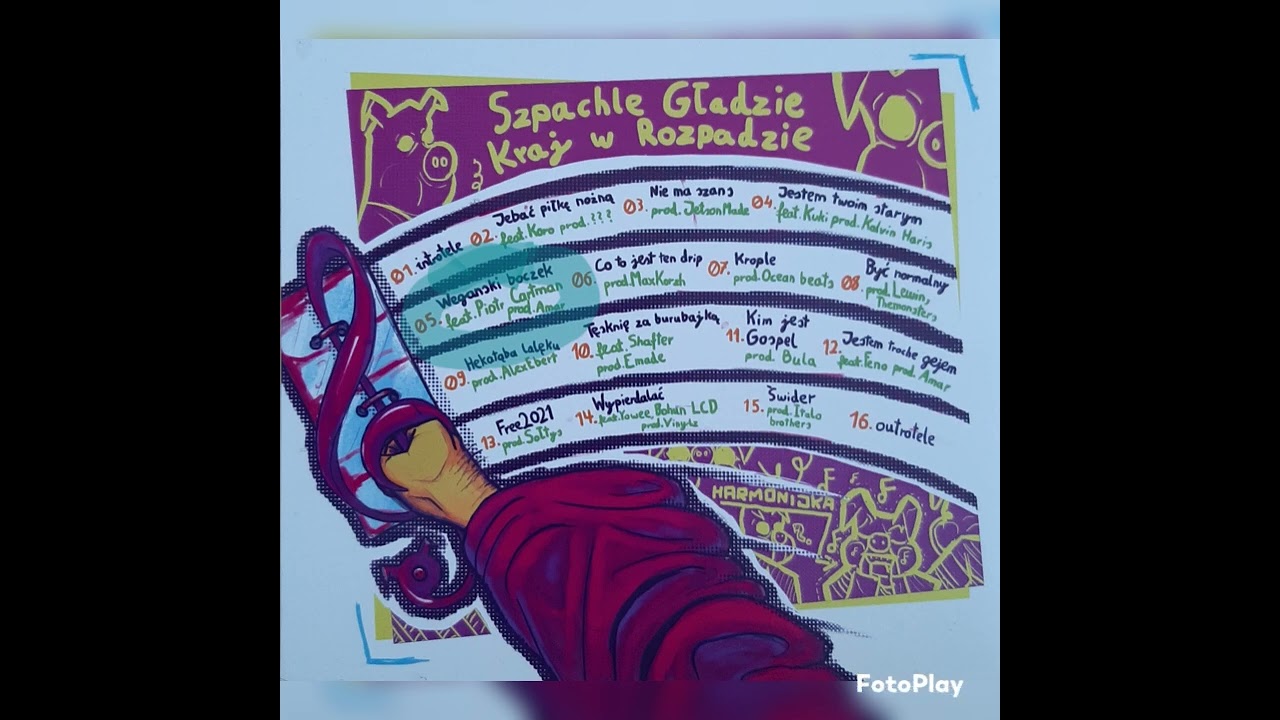 Szpachle Gładzie
Kraj w Rozpadzie
01. introtele
02. Jebać piłkę nożną
feat. Karo prod. ???
03. Nie ma szans
prod. JetsonMade
04. Jestem twoim starym
feat. Kuki prod. Kalvin Haris
05. Wegański boczek
feat. Piotr Cartman
prod. Amar
06. Co to jest ten drip
prod. Max Korzh
07. Krople
prod. Ocean beats
08. Być normalny
prod. Lewin,
Themonsters
09. Hekatąba lalęku
prod. Alex Ebert
10. Tęsknię za burubajką
feat. Shafter
prod. Emade
11. Kim jest
Gospel
prod. Bula
12. Jestem troche gejem
feat. Feno prod. Amar
13. Free2021
prod. Sołtys
14. Wypierdalać
feat. Yowee, Bohun LCD
prod. Vinylz
15. Świder
prod. Italo
brothers
16. outrotele
HARMONIJKA
FotoPlay